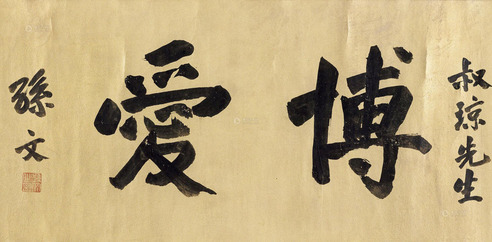 叔琼先生
博愛
孫文